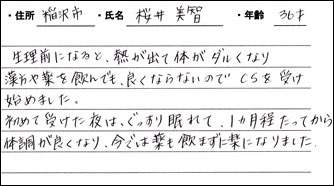 ・住所 稲沢市 ・氏名 桜井 美智 ・年齢 36才
生理前になると、熱が出て体がダルくなり
漢方や薬を飲んでも、良くならないので CSを受け
始めました。
初めて受けた夜は、ぐっすり眠れて、1ヵ月程たってから
体調が良くなり、今では薬も飲まずに楽になりました。